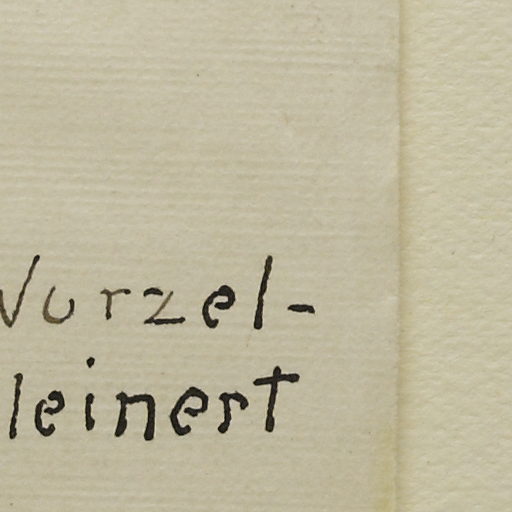 Wurzel-
leinert